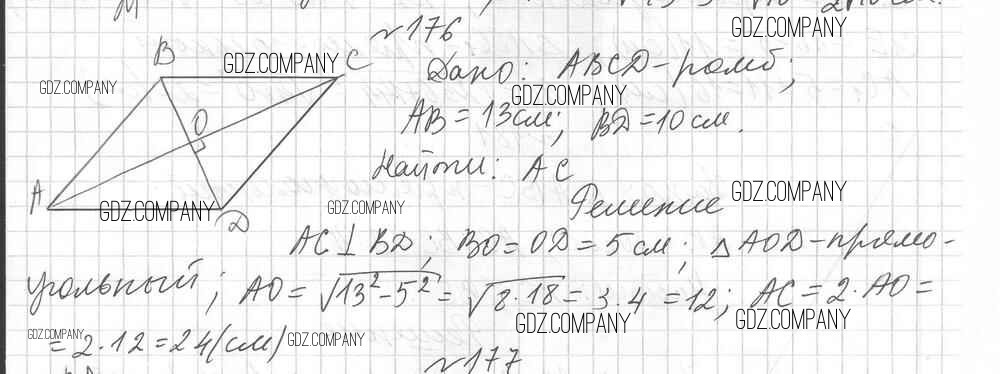 №176
GDZ.COMPANY
B
GDZ.COMPANY
C
Дано: ABCD - ромб;
GDZ.COMPANY
GDZ.COMPANY
AB = 13 см; BD = 10 см.
O
Найти: AC
A
GDZ.COMPANY
D
GDZ.COMPANY
Решение
GDZ.COMPANY
AC ⊥ BD; BO = OD = 5 см; △ AOD - прямо-
угольный; AO = √13² - 5² = √8 · 18 = 3 · 4 = 12; AC = 2 · AO =
GDZ.COMPANY
GDZ.COMPANY
GDZ.COMPANY
= 2 · 12 = 24 (см)
GDZ.COMPANY
№177